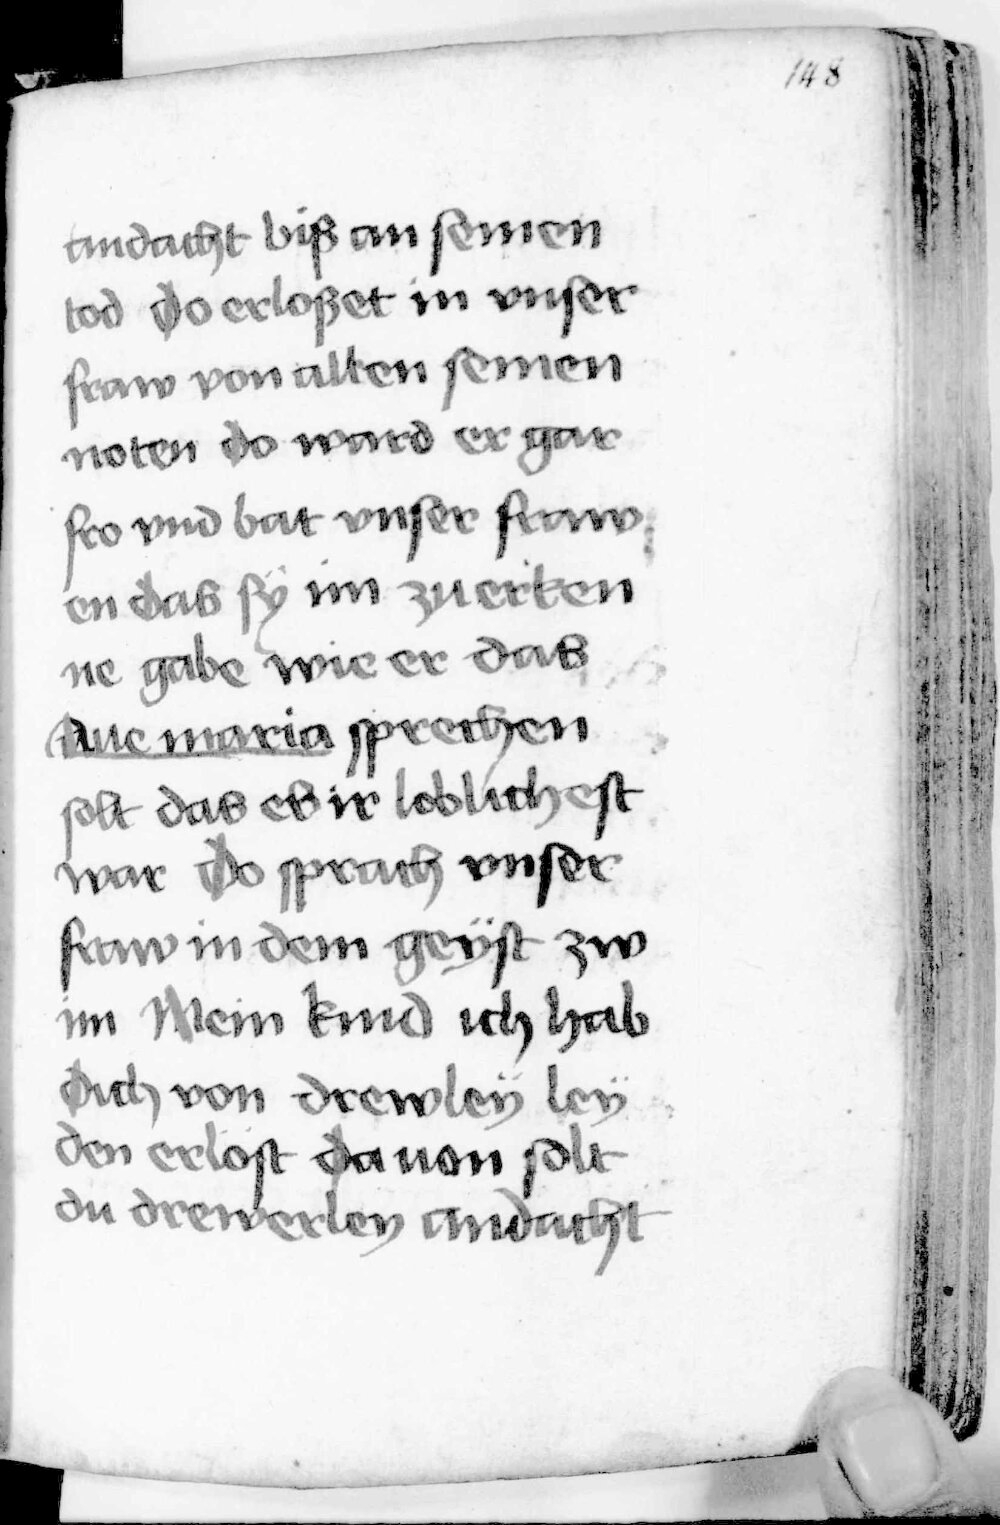 148
andacht biß an seinen
tod Do erloßet in vnser
fraw von allen seinen
noten do ward er gar
fro vnd bat vnser fraw
en das sÿ im zu erken
ne gabe wie er das
Aue maria sprechen
solt das es ir loblichest
war Do sprach vnser
fraw in dem geÿst zw
im Mein kind ich hab
dich von drewleÿ leÿ
den erlöst dauon solt
du drewerley andacht